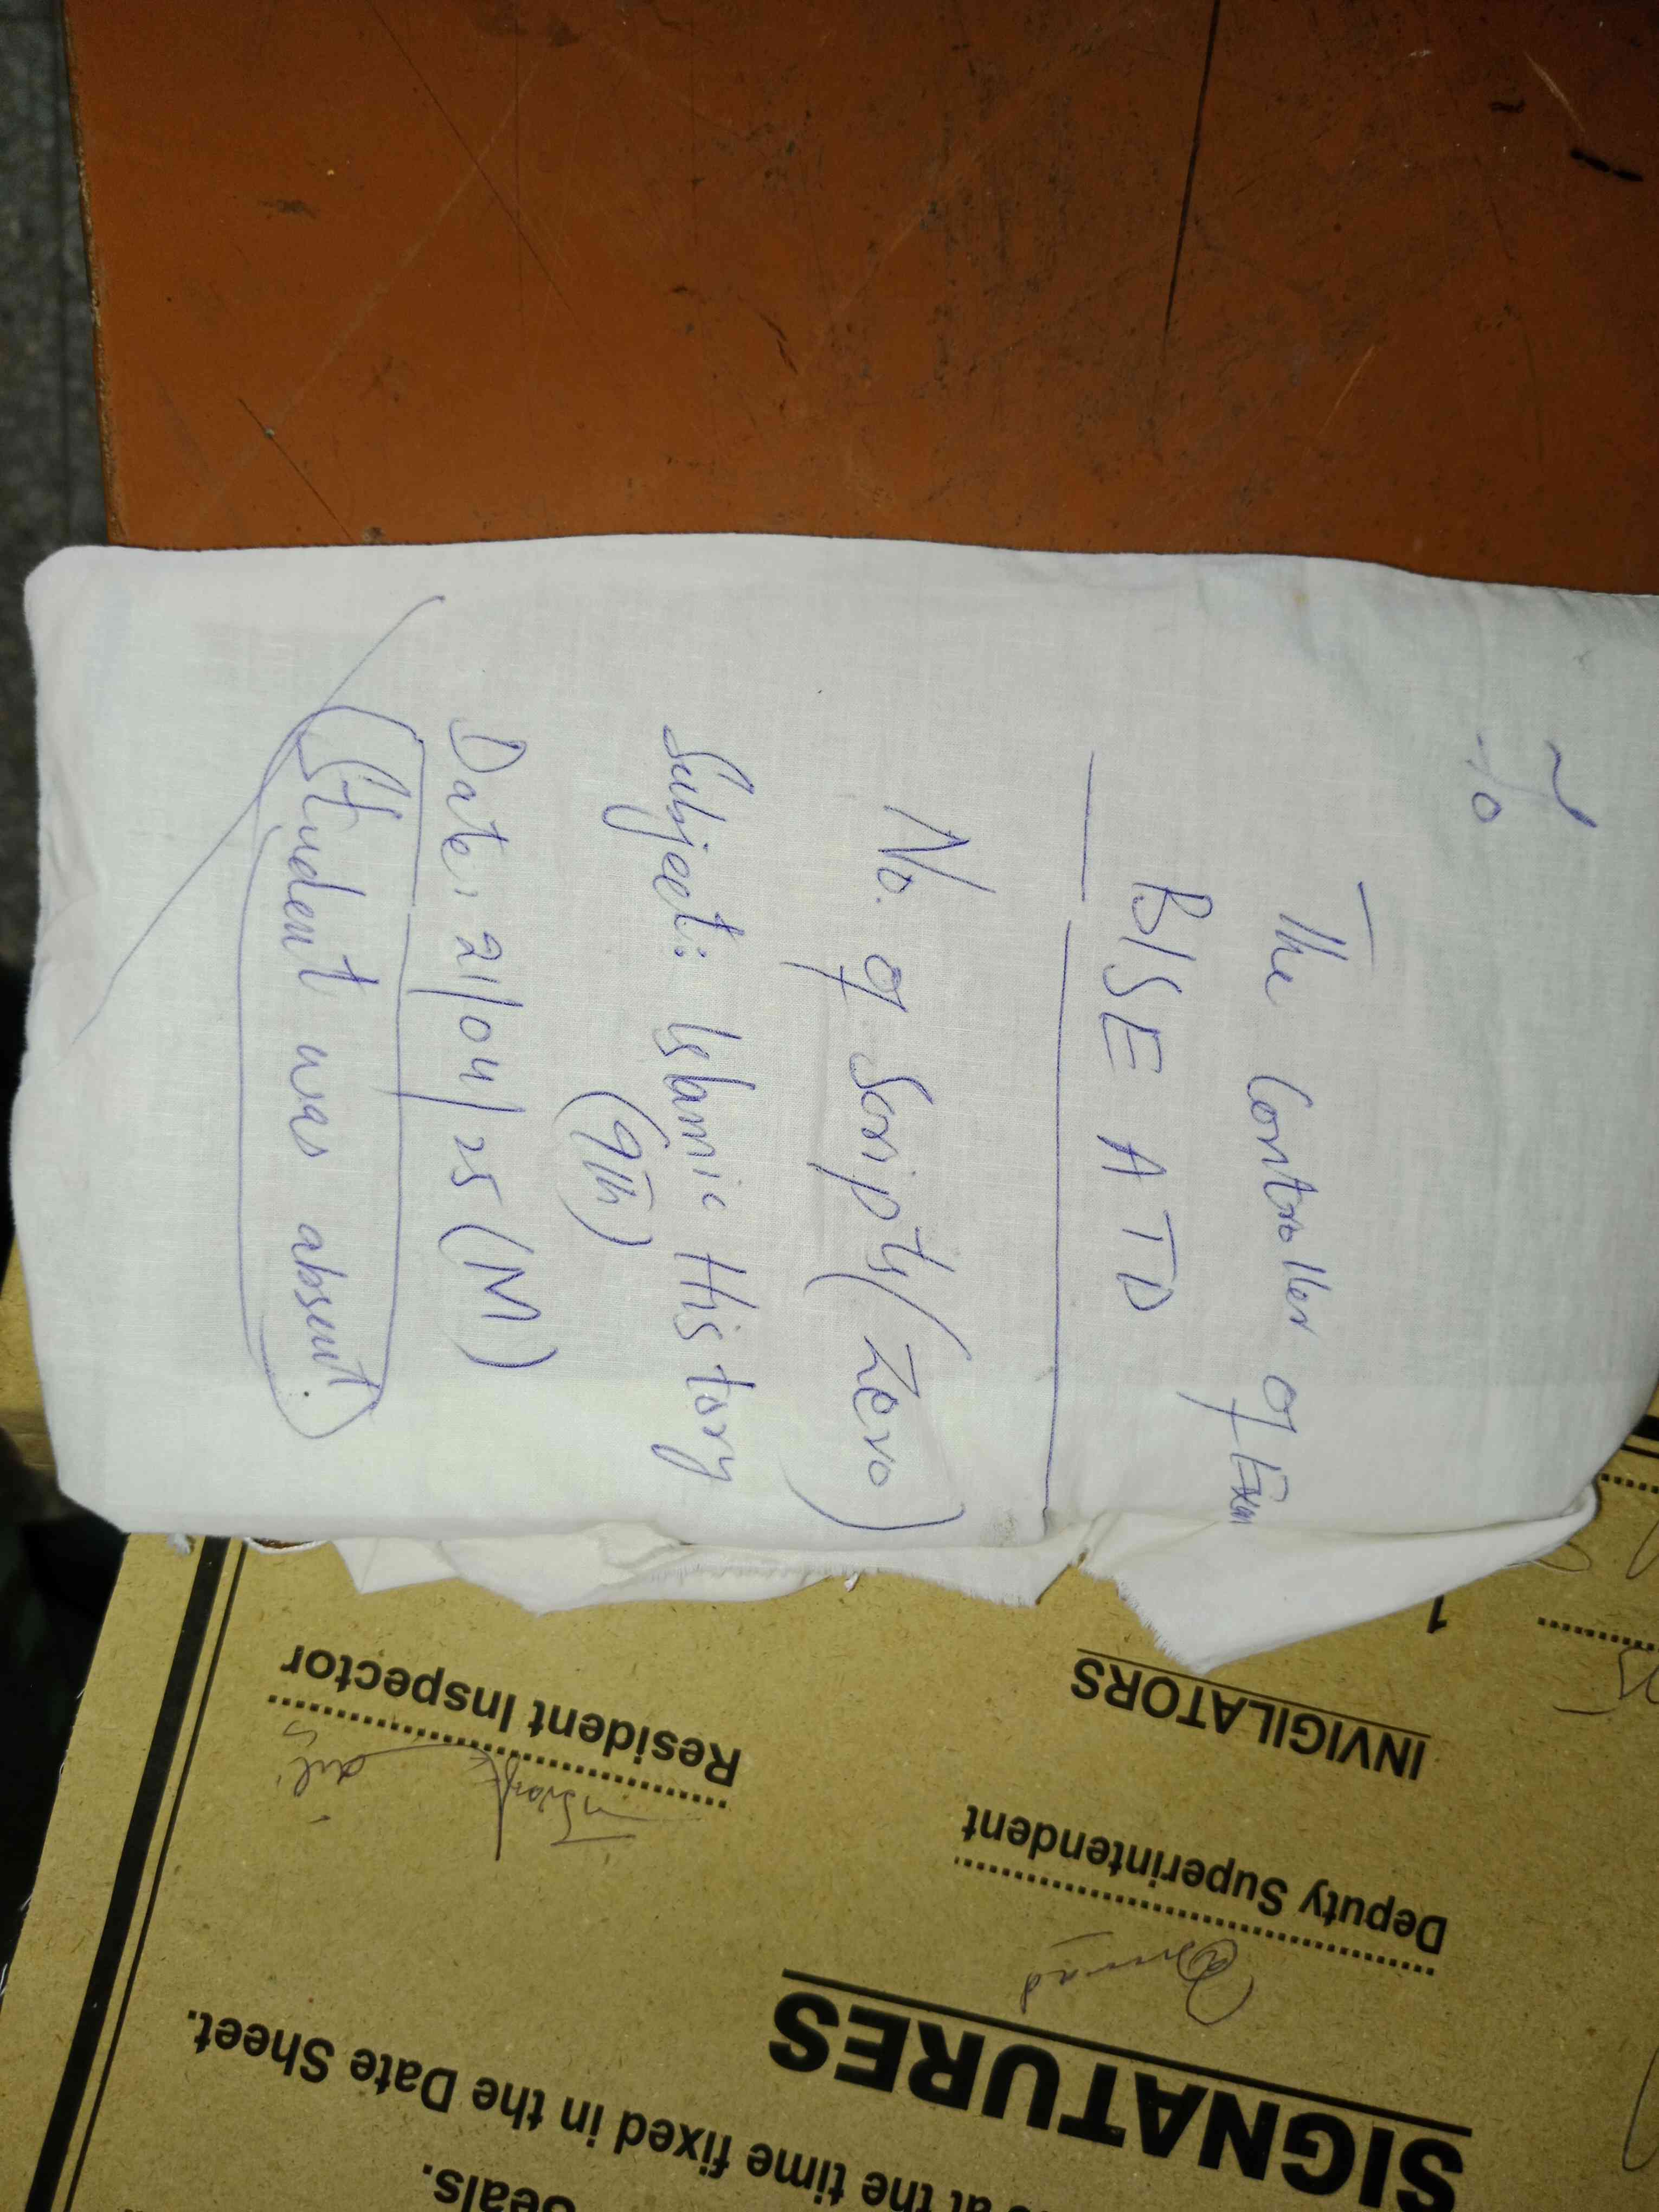 To
The Controller of Exam
BISE ATD
No. of Scripts (Zero)
Subject: Islamic History
(9th)
Date: 21/04/25 (M)
Student was absent.
Seals.
at the time fixed in the Date Sheet.
SIGNATURES
Deputy Superintendent
Resident Inspector
INVIGILATORS
1